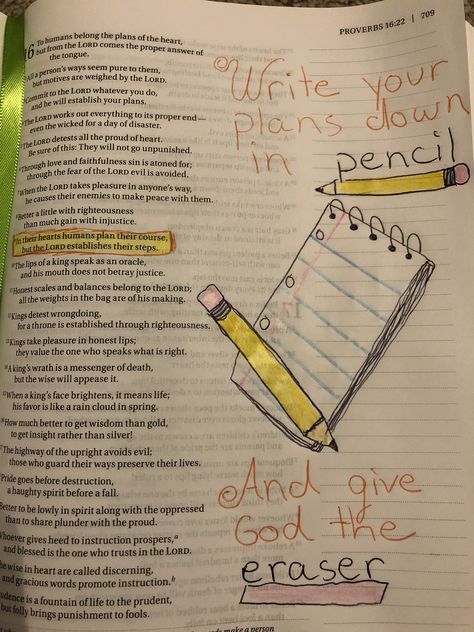 PROVERBS 16:22 | 709
16 To humans belong the plans of the heart,
but from the LORD comes the proper answer of
the tongue.
All a person's ways seem pure to them,
but motives are weighed by the LORD.
Commit to the LORD whatever you do,
and he will establish your plans.
The LORD works out everything to its proper end—
even the wicked for a day of disaster.
The LORD detests all the proud of heart.
Be sure of this: They will not go unpunished.
Through love and faithfulness sin is atoned for;
through the fear of the LORD evil is avoided.
When the LORD takes pleasure in anyone's way,
he causes their enemies to make peace with them.
Better a little with righteousness
than much gain with injustice.
In their hearts humans plan their course,
but the LORD establishes their steps.
The lips of a king speak as an oracle,
and his mouth does not betray justice.
Honest scales and balances belong to the LORD;
all the weights in the bag are of his making.
Kings detest wrongdoing,
for a throne is established through righteousness.
Kings take pleasure in honest lips;
they value the one who speaks what is right.
A king's wrath is a messenger of death,
but the wise will appease it.
When a king's face brightens, it means life;
his favor is like a rain cloud in spring.
How much better to get wisdom than gold,
to get insight rather than silver!
The highway of the upright avoids evil;
those who guard their ways preserve their lives.
Pride goes before destruction,
a haughty spirit before a fall.
Better to be lowly in spirit along with the oppressed
than to share plunder with the proud.
Whoever gives heed to instruction prospers,a
and blessed is the one who trusts in the LORD.
The wise in heart are called discerning,
and gracious words promote instruction.b
Prudence is a fountain of life to the prudent,
but folly brings punishment to fools.
Write your
plans down
in pencil
And give
God the
eraser